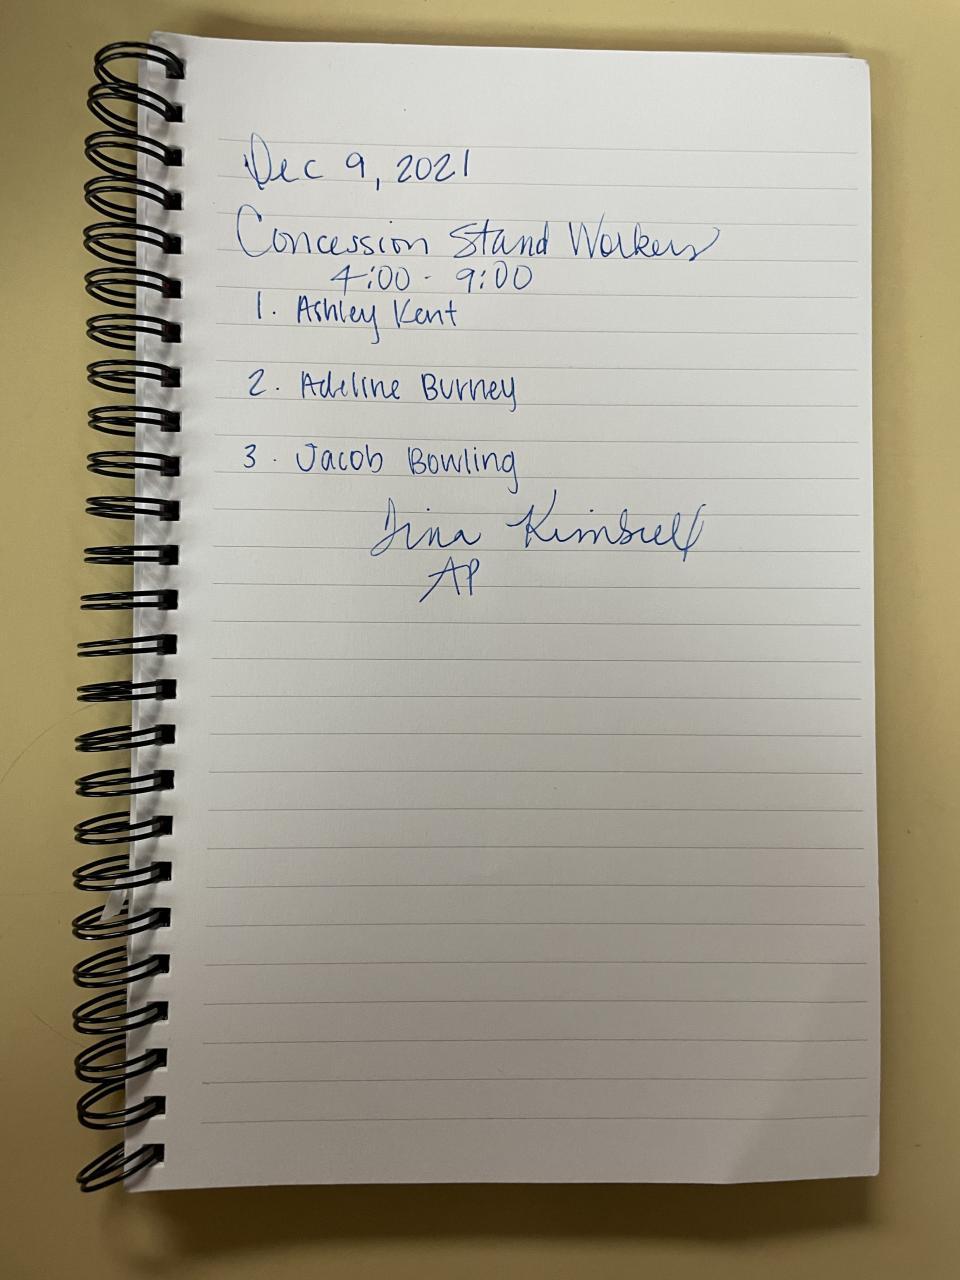 Dec 9, 2021
Concession Stand Workers
4:00 - 9:00
1. Ashley Kent
2. Adeline Burney
3. Jacob Bowling
AP